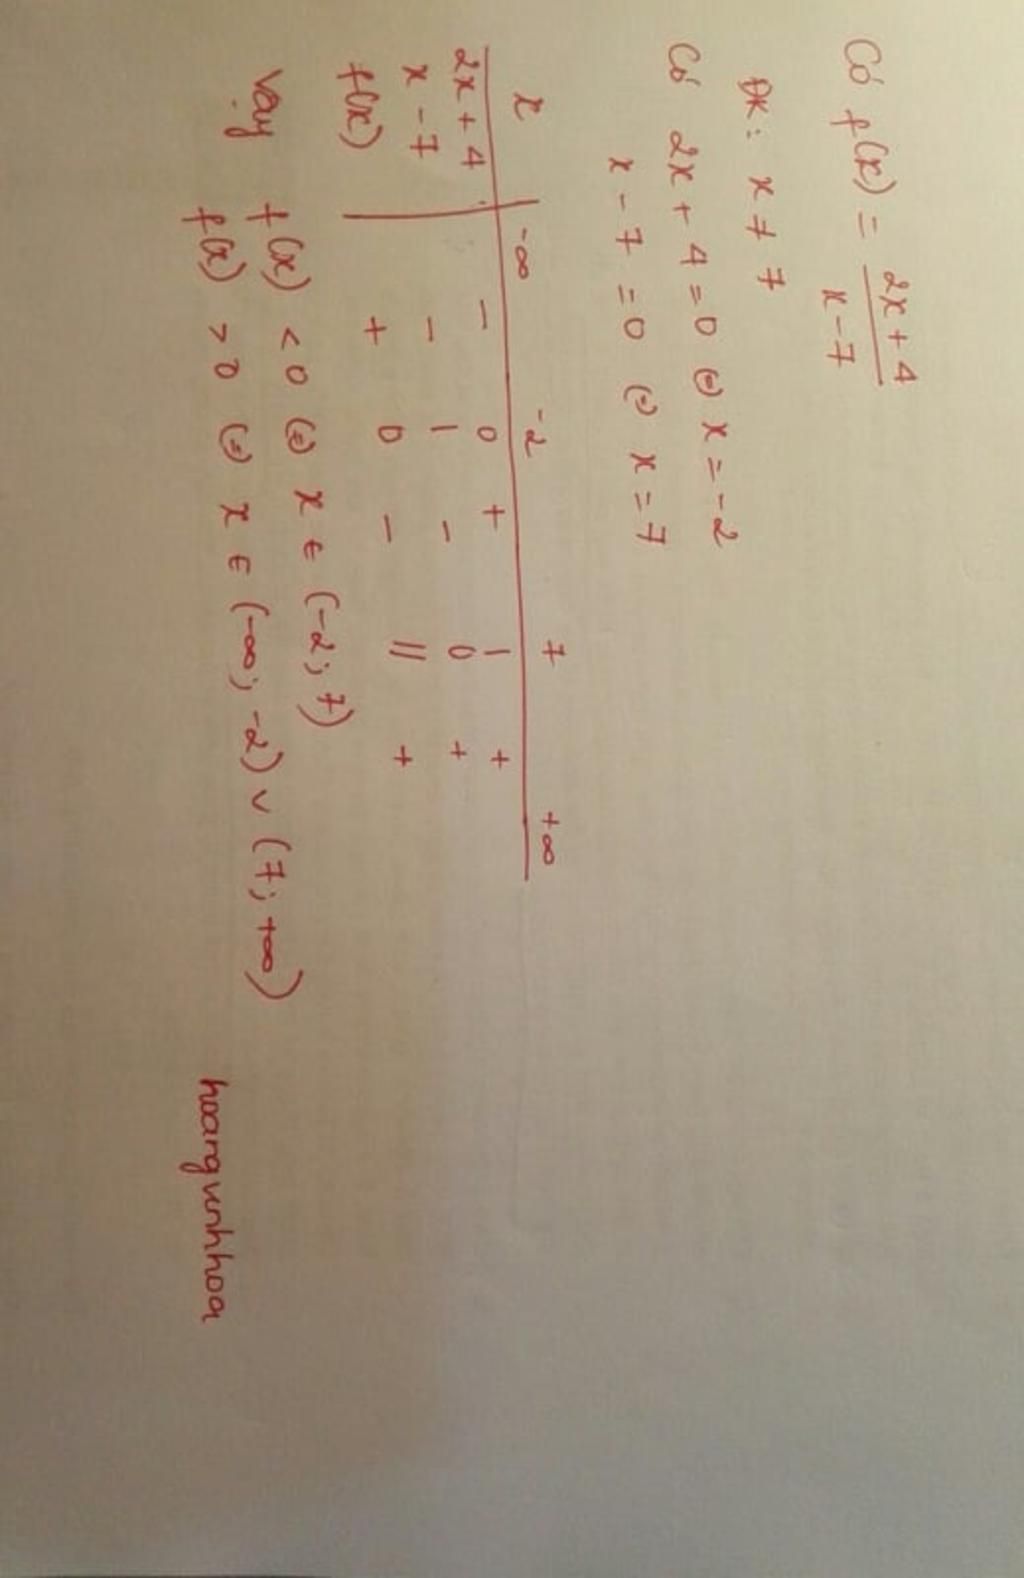 Có f(x) = \frac{2x+4}{x-7}
ĐK: x ≠ 7
Có 2x + 4 = 0 (=) x = -2
x - 7 = 0 (=) x = 7
x -∞ -2 7 +∞
2x + 4 - 0 + | +
x - 7 - | - 0 +
f(x) + 0 - || +
Vậy f(x) < 0 (=) x ∈ (-2; 7)
f(x) > 0 (=) x ∈ (-∞; -2) ∪ (7; +∞)